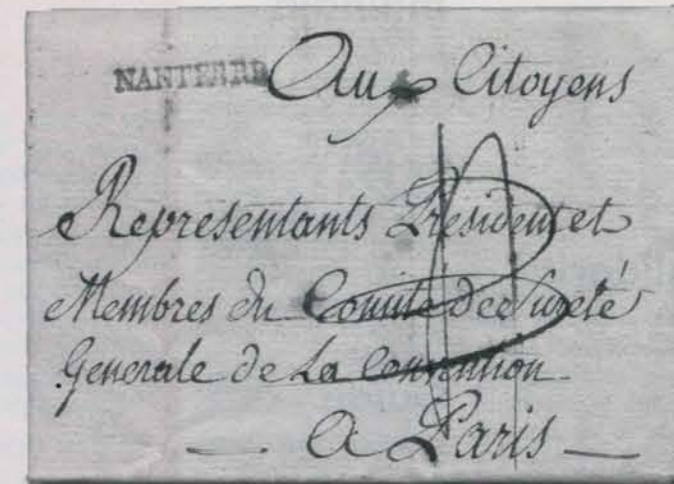 NANTERRE Aux Citoyens
Representants President et
Membres du Comité de Sureté
Generale de La Convention
a Paris